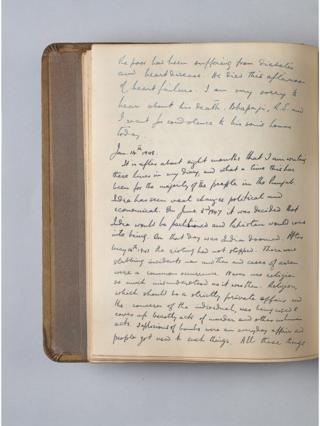 he poor has been suffering from diabetes
and heart disease. He died this afternoon
of heart failure. I am very sorry to
hear about his death. Bhapaji, R.S. and
I went for condolence to his son's house
today.
Jan. 14th 1948.
It is after about eight months that I am writing
these lines in my diary, and what a time this has
been for the majority of the people in the Punjab.
India has seen vast changes political and
economical. On June 3rd 1947 it was decided that
India would be partitioned and Pakistan would come
into being. On that day was India doomed. After
the rioting had not stopped. There were
stabbing incidents and cases of arson
were a common occurrence. Never was religion
so much misunderstood as it was then. Religion,
which should be a strictly private affair and
the concern of the individual, was being used to
cover up beastly acts of murder and other inhuman
acts. Explosions of bombs were an everyday affair and
people got used to such things. All these things